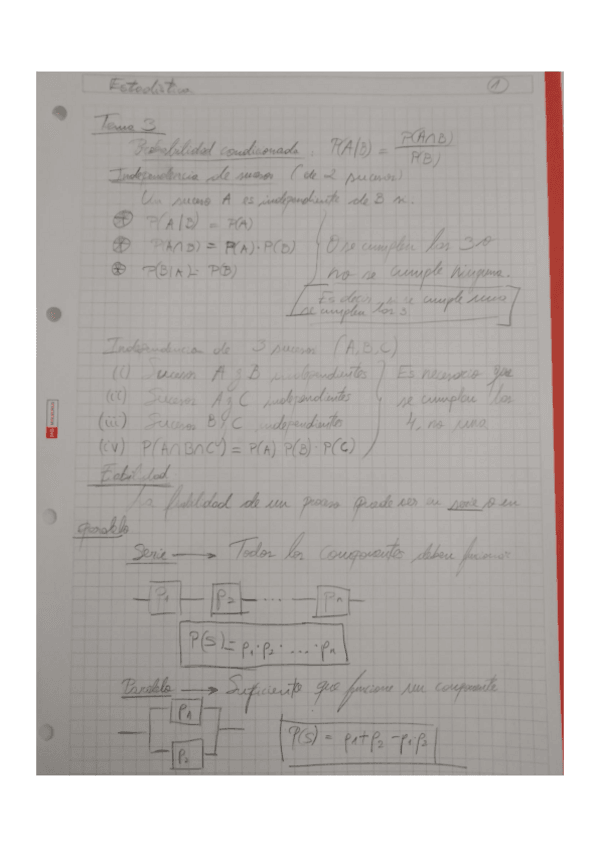 Estadística 1
Tema 3
Probabilidad condicionada. P(A|B) = P(A∩B) / P(B)
Independencia de sucesos (de 2 sucesos)
Un suceso A es independiente de B si.
P(A|B) = P(A)
P(A∩B) = P(A)·P(B)
P(B|A) = P(B)
O se cumplen los 3 o
no se cumple ninguna.
Es decir, si se cumple una
se cumplen los 3
Independencia de 3 sucesos (A,B,C)
(i) Sucesos A y B independientes
(ii) Sucesos A y C independientes
(iii) Sucesos B y C independientes
(iv) P(A∩B∩C) = P(A) P(B)·P(C)
Es necesario que
se cumplan los
4, no una
La fidelidad de un proceso puede ser en serie o en
paralelo
Serie → Todos los componentes deben funcionar
p1 p2 ... pn
P(S) = p1·p2· .... ·pn
Paralelo → Suficiente que funcione un componente
p1
p2
P(S) = p1+p2 -p1·p2